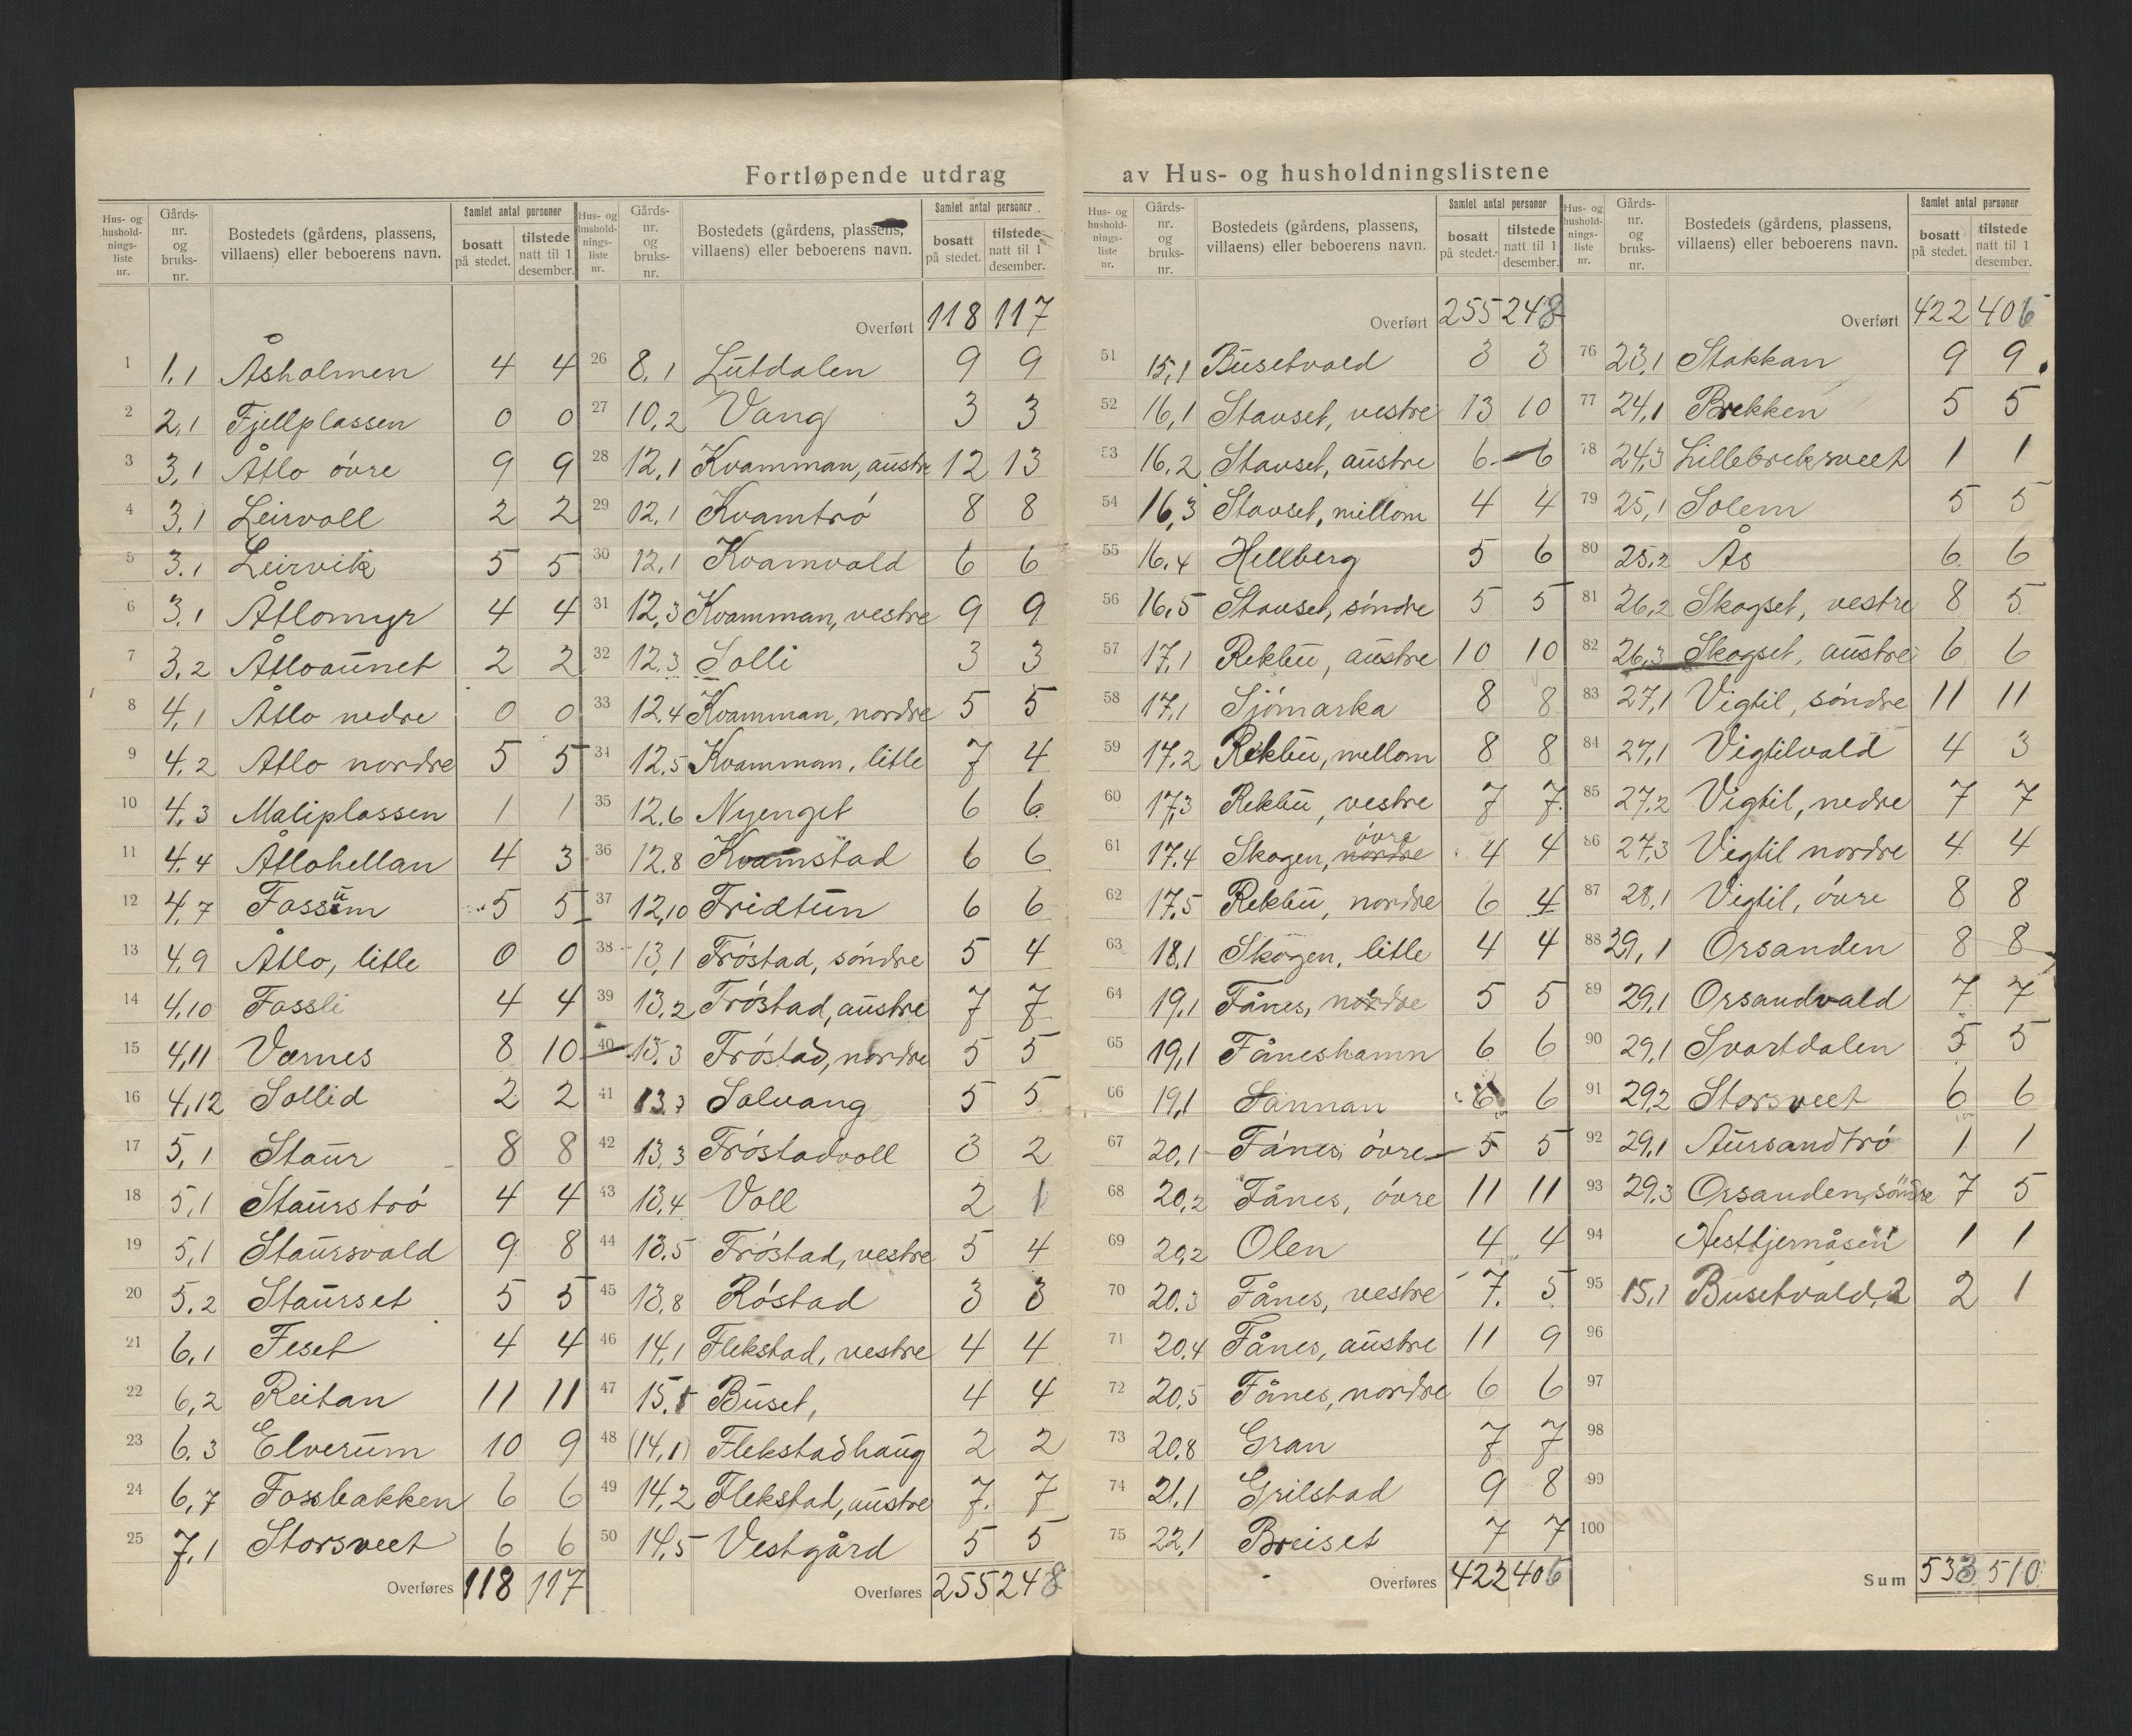 Fortløpende utdrag av Hus- og husholdningslistene
Hus- og hushold-nings-liste nr. | Gårds-nr. og bruks-nr. | Bostedets (gårdens, plassens, villaens) eller beboerens navn. | Samlet antal personer | bosatt på stedet. | tilstede natt til 1 desember.
1 1,1 Åsholmen 4 4
2 2,1 Fjellplassen 0 0
3 3,1 Åtlo övre 9 9
4 3,1 Leirvoll 2 2
5 3.1 Leirvik 5 5
6 3.1 Åtlomyr 4 4
7 3.2 Åtloaunet 2 2
8 4,1 Åtlo nedre 0 0
9 4.2 Åtlo nordre 5 5
10 4.3 Maliplassen 1 1
11 4.4 Åtlohellan 4 3
12 4,7 Fossum 5 5
13 4.9 Åtlo, litle 0 0
14 4,10 Fossli 4 4
15 4,11 Værnes 8 10
16 4,12 Sollid 2 2
17 5,1 Staur 8 8
18 5,1 Staurströ 4 4
19 5,1 Staursvald 9 8
20 5.2 Staurset 5 5
21 6,1 Feset 4 4
22 6,2 Reitan 11 11
23 6.3 Elverum 10 9
24 6,7 Fossbakken 6 6
25 7.1 Storsveet 6 6
Overføres 118 117
Hus- og hushold-nings-liste nr. | Gårds-nr. og bruks-nr. | Bostedets (gårdens, plassens, villaens) eller beboerens navn. | Samlet antal personer | bosatt på stedet. | tilstede natt til 1 desember.
Overført 118 117
26 8,1 Lutdalen 9 9
27 10,2 Vang 3 3
28 12,1 Kvamman, austre 12 13
29 12,1 Kvamtrö 8 8
30 12,1 Kvamvald 6 6
31 12,3 Kvamman, vestre 9 9
32 12.3 Solli 3 3
33 12,4 Kvamman, nordre 5 5
34 12.5 Kvamman, litle 7 4
35 12.6 Nyenget 6 6
36 12.8 Kvamstad 6 6
37 12,10 Fridtun 6 6
38 13,1 Tröstad, söndre 5 4
39 13,2 Tröstad, austre 7 7
40 13.3 Tröstad, nordre 5 5
41 13.3 Solvang 5 5
42 13,3 Tröstadvoll 3 2
43 13,4 Voll 2 1
44 13.5 Tröstad, vestre 5 4
45 13,8 Röstad 3 3
46 14,1 Flekstad, vestre 4 4
47 15,1 Buset, 4 4
48 (14,1) Flekstadhaug 2 2
49 14,2 Flekstad, austre 7 7
50 14,5 Vestgård 5 5
Overføres 255 248
Hus- og hushold-nings-liste nr. | Gårds-nr. og bruks-nr. | Bostedets (gårdens, plassens, villaens) eller beboerens navn. | Samlet antal personer | bosatt på stedet. | tilstede natt til 1 desember.
Overført 255 248
51 15,1 Busetvald 3 3
52 16,1 Stavset, vestre 13 10
53 16,2 Stavset, austre 6 6
54 16,3 Stavset, millom 4 4
55 16,4 Hellberg 5 6
56 16,5 Stavset, söndre 5 5
57 17,1 Rekbu, austre 10 10
58 17,1 Sjömarka 8 8
59 17,2 Rekbu, mellom 8 8
60 17,3 Rekbu, vestre 7 7
61 17.4 Skogen, nordre övre 4 4
62 17,5 Rekbu, nordre 6 4
63 18,1 Skogen, litle 4 4
64 19,1 Fånes, nordre 5 5
65 19,1 Fåneshamn 6 6
66 19,1 Sannan 6 6
67 20,1 Fånes övre 5 5
68 20,2 Fånes, övre 11 11
69 20,2 Olen 4 4
70 20,3 Fånes, vestre 7 5
71 20,4 Fånes, austre 11 9
72 20,5 Fånes, nordre 6 6
73 20,8 Gran 7 7
74 21,1 Grilstad 9 8
75 22,1 Breiset 7 7
Overføres 422 406
Hus- og hushold-nings-liste nr. | Gårds-nr. og bruks-nr. | Bostedets (gårdens, plassens, villaens) eller beboerens navn. | Samlet antal personer | bosatt på stedet. | tilstede natt til 1 desember.
Overført 422 406
76 23,1 Stokkan 9 9
77 24,1 Brekken 5 5
78 24,3 Lillebreksveet 1 1
79 25,1 Solem 5 5
80 25,2 Ås 6 6
81 26,2 Skogset, vestre 8 5
82 26,3 Skogset, austre 6 6
83 27,1 Vigtil, söndre 11 11
84 27,1 Vigtilvald 4 3
85 27,2 Vigtil, nedre 7 7
86 27,3 Vigtil nordre 4 4
87 28,1 Vigtil, övre 8 8
88 29,1 Orsanden 8 8
89 29,1 Orsandvald 7 7
90 29,1 Svartdalen 5 5
91 29,2 Storsveet 6 6
92 29,1 Aursandtrö 1 1
93 29,3 Orsanden, söndre 7 5
94 Hesttjernåsen 1 1
95 15,1 Busetvald, 2 2 1
96
97
98
99
100
Sum 533 510